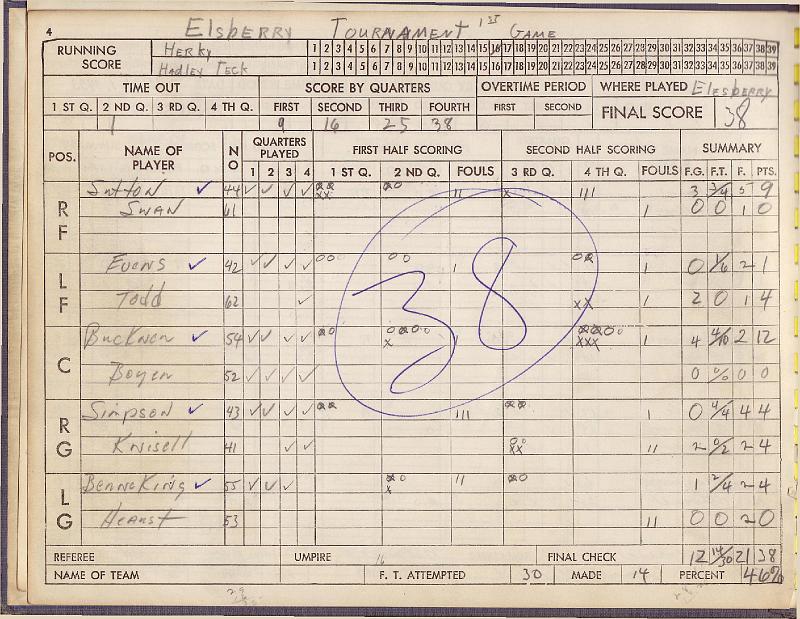 4 Elsberry Tournament 1st Game
RUNNING SCORE
Herky 1 2 3 4 5 6 7 8 9 10 11 12 13 14 15 16 17 18 19 20 21 22 23 24 25 26 27 28 29 30 31 32 33 34 35 36 37 38 39
Hadley Teck 1 2 3 4 5 6 7 8 9 10 11 12 13 14 15 16 17 18 19 20 21 22 23 24 25 26 27 28 29 30 31 32 33 34 35 36 37 38 39
TIME OUT SCORE BY QUARTERS OVERTIME PERIOD WHERE PLAYED Elesberry
1 ST Q. 2 ND Q. 3 RD Q. 4 TH Q. FIRST SECOND THIRD FOURTH FIRST SECOND FINAL SCORE 38
1 9 16 25 38
POS. NAME OF PLAYER NO QUARTERS PLAYED FIRST HALF SCORING SECOND HALF SCORING SUMMARY
1 2 3 4 1 ST Q. 2 ND Q. FOULS 3 RD Q. 4 TH Q. FOULS F.G. F.T. F. PTS.
RF Sutton ✓ 44 ✓ ✓ ✓ ✓ 3 3/4 5 9
Swan 61 0 0 1 0
LF Evens ✓ 42 ✓ ✓ ✓ ✓ 0 1/6 2 1
Todd 62 ✓ XX 2 0 1 4
38
C Buckner ✓ 54 ✓ ✓ ✓ ✓ XXX 4 4/10 2 12
Boyen 52 ✓ ✓ ✓ ✓ 0 0 0
RG Simpson ✓ 43 ✓ ✓ ✓ ✓ 0 4/4 4 4
Knisell 41 ✓ ✓ 2 0/2 2 4
LG Benneking ✓ 55 ✓ ✓ ✓ 1 2/4 2 4
Hearst 53 0 0 2 0
REFEREE UMPIRE 16 FINAL CHECK 12 14/30 21 38
NAME OF TEAM F. T. ATTEMPTED 30 MADE 14 PERCENT 46%